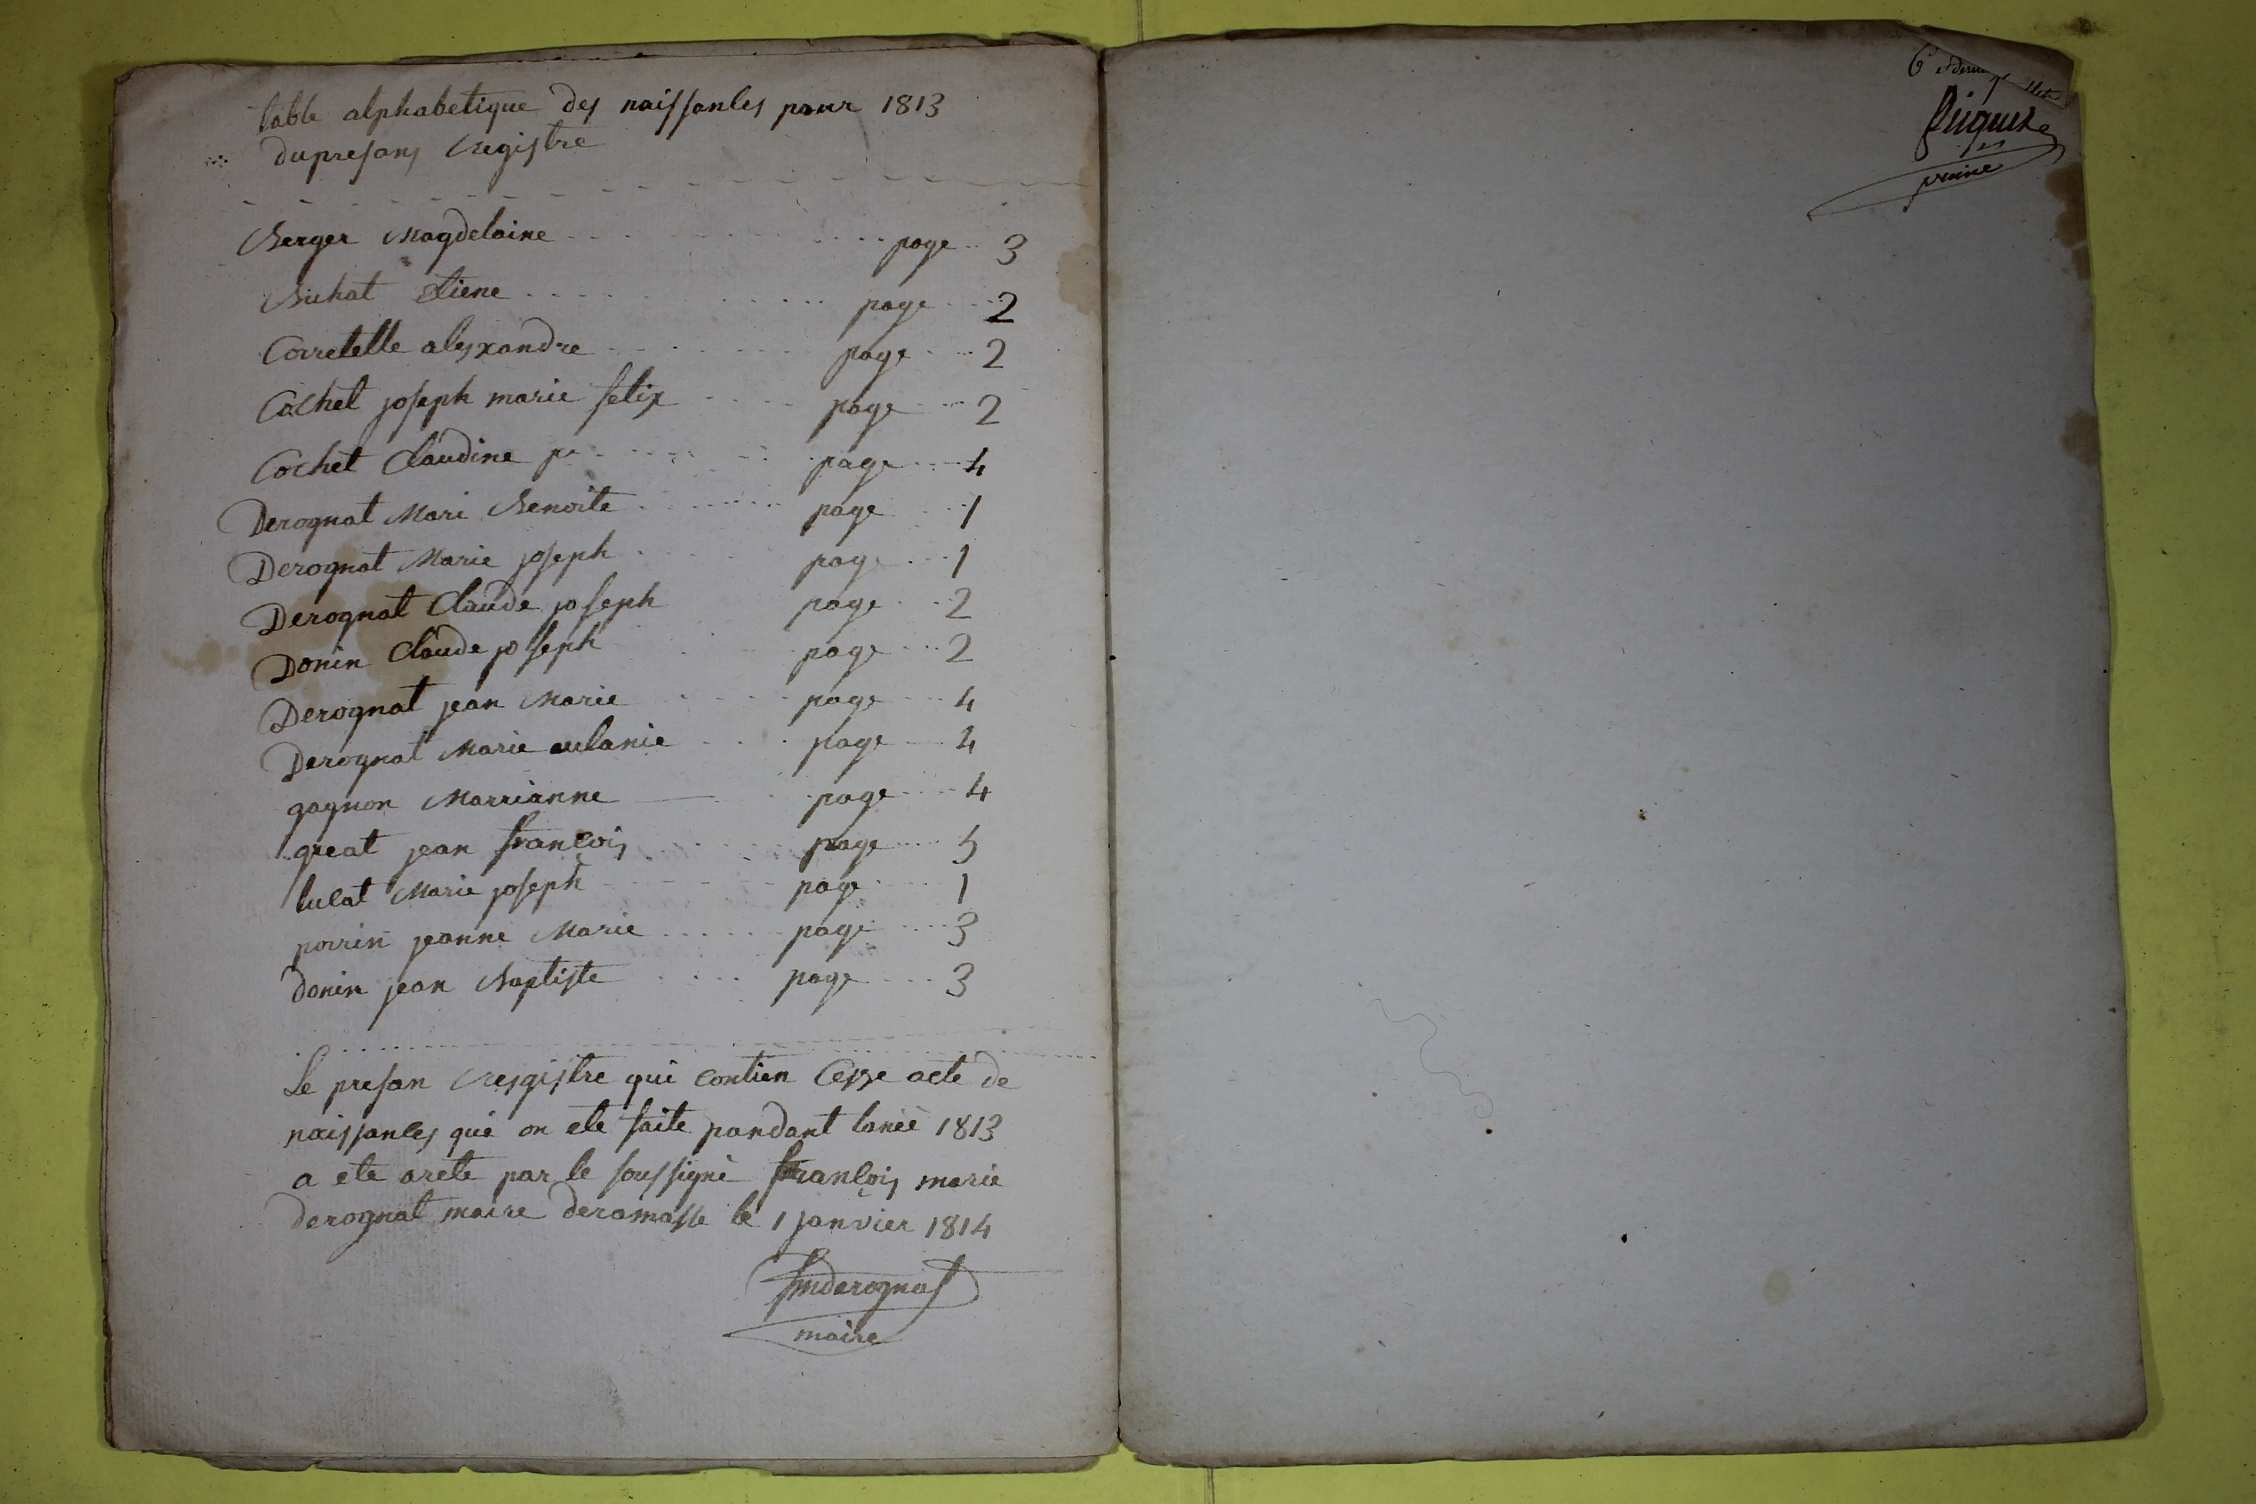 table alphabetique des naissances pour 1813
du presans registre
Berger Magdelaine page 3
Bichat Etiene page 2
Corretelle alesxandre page 2
Cachet joseph marie felix page 2
Cochet Claudine page 4
Derognat Mari Benoite page 1
Derognat Marie joseph page 1
Derognat Claude joseph page 2
Donin Claude joseph page 2
Derognat jean Marie page 4
Derognat Marie page 4
gagnon Marrianne page 4
great jean françois page 5
lucat Marie joseph page 1
poirin jeanne Marie page 3
donin jean Baptiste page 3
Le presan resgistre qui contien acte de
naissances qui on ete faite pandant lanèè 1813
a ete arete par le soussignè françois marie
derognat maire deramasse le 1 janvier 1814
fmderognat
maire
6e